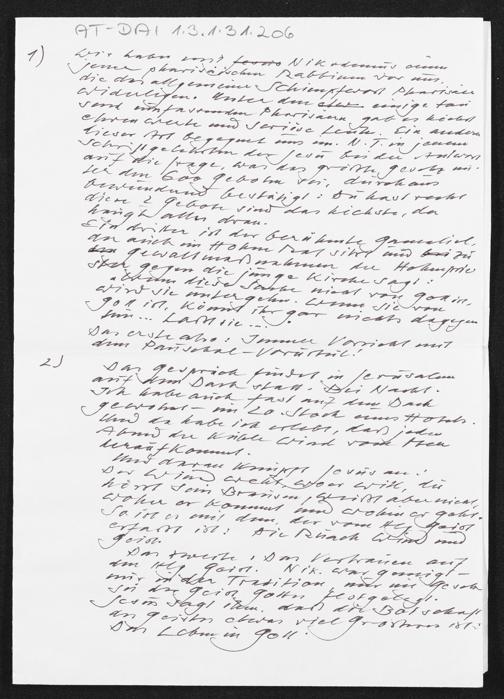 AT-DAI 1.3.1.31.206
1) Wir haben mit Nikodemus einen
jener pharisäischen Rabbinen vor uns,
die das allgemeine Schimpfwort Pharisäer
widerlegen. Unter den einige tau
send umfassenden Pharisäern gab es höchst
ehrenwerte und seriöse Leute. Ein anderer
dieser Art begegnet uns im N.T. in jenem
Schriftgelehrten, der Jesu bei der Antwort
auf die Frage, was das größte Gesetz un-
ter den 600 Geboten sei, durchaus
bewundernd bestätigt: Du hast recht
diese 2 Gebote sind das höchste, da
hängt alles dran.
Ein dritter ist der berühmte Gamaliel,
der auch im Hohen Rat sitzt und zu
Gewaltmaßnahmen der Hohenprie
ster gegen die junge Kirche sagt:
wenn diese Sache nicht von Gott ist,
wird sie untergehn. Wenn sie von
Gott ist, könnt ihr gar nichts dagegen
tun... Laßt sie...!
Das erste also: Immer Vorsicht mit
dem Pauschal-Vorurteil!
2) Das Gespräch findet in Jerusalem
auf dem Dach statt. Bei Nacht.
Ich habe auch fast auf dem Dach
gewohnt – im 20. Stock eines Hotels.
Und da habe ich erlebt, daß jeden
Abend der kühle Wind vom Meer
heraufkommt.
Und daran knüpft Jesus an:
Der Wind weht, wo er will, du
hörst sein Brausen, weißt aber nicht,
woher er kommt und wohin er geht.
So ist es mit dem, der vom Hlg Geist
erfaßt ist: Die Ruach Wind und
Geist.
Das zweite: Das Vertrauen auf
den Hlg Geist. Nik. war geneigt –
nur in der Tradition, nur im Gesetz
sei der Geist Gottes festgelegt.
Jesus sagt ihm, daß die Botschaft
des Geistes etwas viel Größeres ist:
Das Leben in Gott!